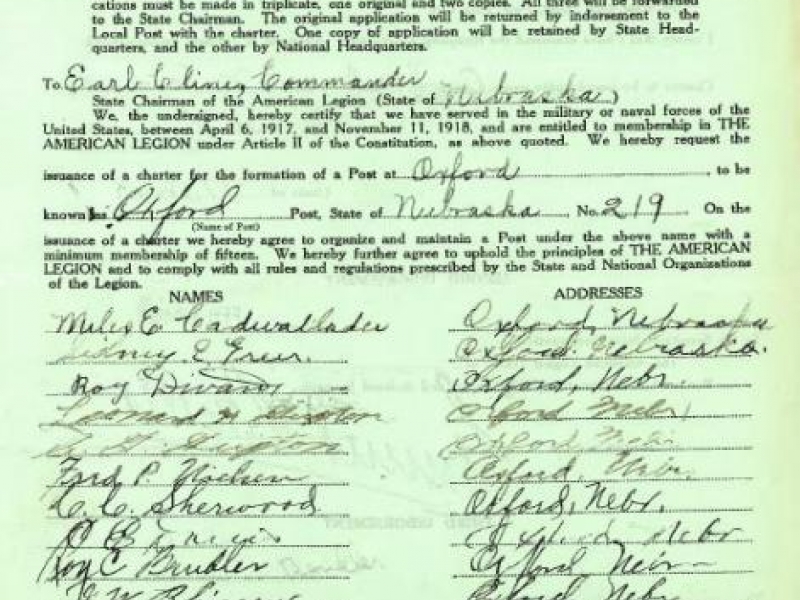 cations must be made in triplicate, one original and two copies. All three will be forwarded
to the State Chairman. The original application will be returned by indorsement to the
Local Post with the charter. One copy of application will be retained by State Head-
quarters, and the other by National Headquarters.
To Earl Cline, Commander
State Chairman of the American Legion (State of Nebraska)
We, the undersigned, hereby certify that we have served in the military or naval forces of the
United States, between April 6, 1917, and November 11, 1918, and are entitled to membership in THE
AMERICAN LEGION under Article II of the Constitution, as above quoted. We hereby request the
issuance of a charter for the formation of a Post at Oxford, to be
known as Oxford Post, State of Nebraska, No. 219. On the
(Name of Post)
issuance of a charter we hereby agree to organize and maintain a Post under the above name with a
minimum membership of fifteen. We hereby further agree to uphold the principles of THE AMERICAN
LEGION and to comply with all rules and regulations prescribed by the State and National Organizations
of the Legion.
NAMES ADDRESSES
Miles E. Cadwallader Oxford, Nebraska
Sidney E. Oxford. Nebraska.
Roy Oxford, Nebr.
Leonard H. Oxford Nebr
Oxford Nebr.
Fred P. Nielsen Oxford, Nebr.
C. C. Sherwood Oxford, Nebr.
Oxford Nebr
Roy C. Brubler Oxford Nebr
Oxford Nebr